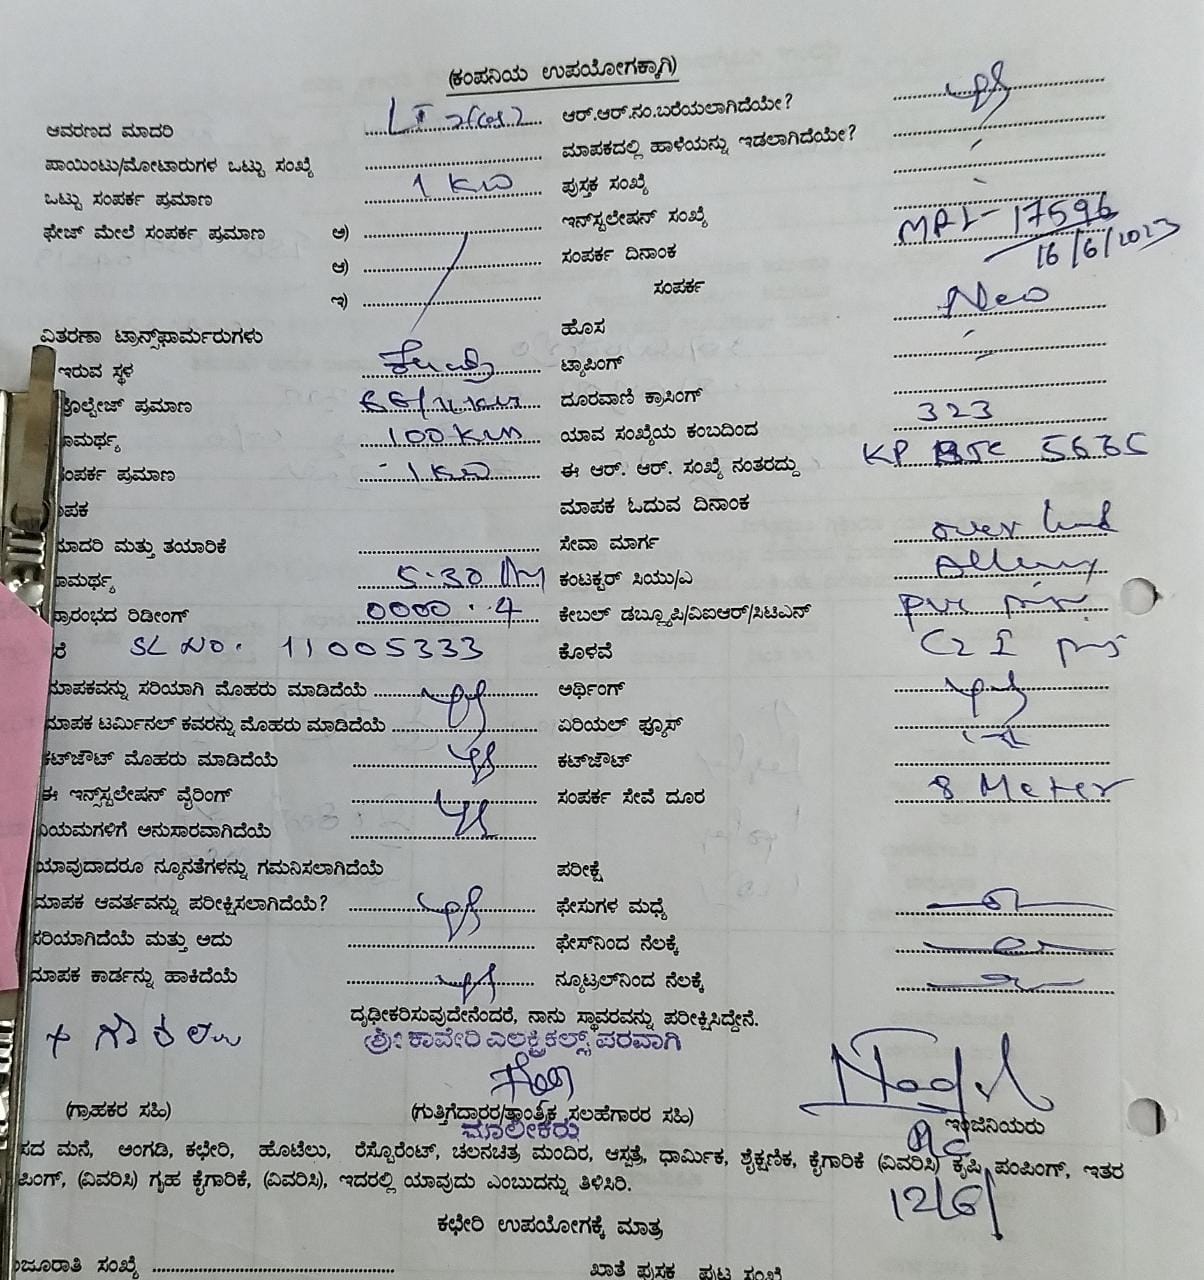 (ಕಂಪನಿಯ ಉಪಯೋಗಕ್ಕಾಗಿ)
ಆವರಣದ ಮಾದರಿ LT ಆರ್.ಆರ್.ನಂ.ಬರೆಯಲಾಗಿದೆಯೇ?
ಪಾಯಿಂಟು/ಮೋಟಾರುಗಳ ಒಟ್ಟು ಸಂಖ್ಯೆ ಮಾಪಕದಲ್ಲಿ ಹಾಳೆಯನ್ನು ಇಡಲಾಗಿದೆಯೇ?
ಒಟ್ಟು ಸಂಪರ್ಕ ಪ್ರಮಾಣ 1 KW ಪುಸ್ತಕ ಸಂಖ್ಯೆ
ಫೇಜ್ ಮೇಲೆ ಸಂಪರ್ಕ ಪ್ರಮಾಣ ಅ) ಇನ್‌ಸ್ಟಲೇಷನ್ ಸಂಖ್ಯೆ 17596
ಆ) ಸಂಪರ್ಕ ದಿನಾಂಕ 16/6/2023
ಇ) ಸಂಪರ್ಕ New
ವಿತರಣಾ ಟ್ರಾನ್ಸ್‌ಫಾರ್ಮರುಗಳು ಹೊಸ
ಇರುವ ಸ್ಥಳ ಟ್ಯಾಪಿಂಗ್
ವೋಲ್ಟೇಜ್ ಪ್ರಮಾಣ ದೂರವಾಣಿ ಕ್ರಾಸಿಂಗ್
ಾಮರ್ಥ್ಯ 100 ಯಾವ ಸಂಖ್ಯೆಯ ಕಂಬದಿಂದ 323
ಸಂಪರ್ಕ ಪ್ರಮಾಣ 1 KW ಈ ಆರ್. ಆರ್. ಸಂಖ್ಯೆ ನಂತರದ್ದು KP 5635
ಾಪಕ ಮಾಪಕ ಓದುವ ದಿನಾಂಕ
ಮಾದರಿ ಮತ್ತು ತಯಾರಿಕೆ ಸೇವಾ ಮಾರ್ಗ over head
ಾಮರ್ಥ್ಯ 5-30 ಕಂಟಕ್ಟರ್ ಸಿಯು/ಎ
ಪ್ರಾರಂಭದ ರಿಡೀಂಗ್ 0000.4 ಕೇಬಲ್ ಡಬ್ಲ್ಯೂಪಿ/ವಿಐಆರ್/ಸಿಟಿಎಸ್ PVC
ರೆ SL NO. 11005333 ಕೊಳವೆ
ಮಾಪಕವನ್ನು ಸರಿಯಾಗಿ ಮೊಹರು ಮಾಡಿದೆಯೆ ಅರ್ಥಿಂಗ್
ಮಾಪಕ ಟರ್ಮಿನಲ್ ಕವರನ್ನು ಮೊಹರು ಮಾಡಿದೆಯೆ ಏರಿಯಲ್ ಫ್ಯೂಸ್
ಕಟ್‌ಜೌಟ್ ಮೊಹರು ಮಾಡಿದೆಯೆ ಕಟ್‌ಜೌಟ್
ಈ ಇನ್‌ಸ್ಟಲೇಷನ್ ವೈರಿಂಗ್ ಸಂಪರ್ಕ ಸೇವೆ ದೂರ 8 Meter
ನಿಯಮಗಳಿಗೆ ಅನುಸಾರವಾಗಿದೆಯೆ
ಯಾವುದಾದರೂ ನ್ಯೂನತೆಗಳನ್ನು ಗಮನಿಸಲಾಗಿದೆಯೆ ಪರೀಕ್ಷೆ
ಮಾಪಕ ಆವರ್ತವನ್ನು ಪರೀಕ್ಷಿಸಲಾಗಿದೆಯೆ? ಫೇಸುಗಳ ಮಧ್ಯೆ
ಸರಿಯಾಗಿದೆಯೆ ಮತ್ತು ಅದು ಫೇಸ್‌ನಿಂದ ನೆಲಕ್ಕೆ
ಮಾಪಕ ಕಾರ್ಡನ್ನು ಹಾಕಿದೆಯೆ ನ್ಯೂಟ್ರಲ್‌ನಿಂದ ನೆಲಕ್ಕೆ
ದೃಢೀಕರಿಸುವುದೇನೆಂದರೆ, ನಾನು ಸ್ಥಾವರವನ್ನು ಪರೀಕ್ಷಿಸಿದ್ದೇನೆ.
ಶ್ರೀ ಕಾವೇರಿ ಎಲಕ್ಟ್ರಿಕಲ್ಸ್ ಪರವಾಗಿ
(ಗ್ರಾಹಕರ ಸಹಿ) (ಗುತ್ತಿಗೆದಾರರ/ತಾಂತ್ರಿಕ ಸಲಹೆಗಾರರ ಸಹಿ) ಇಂಜಿನಿಯರು
ಮಾಲೀಕರು
ಸದ ಮನೆ, ಅಂಗಡಿ, ಕಛೇರಿ, ಹೊಟೆಲು, ರೆಸ್ಟೊರೆಂಟ್, ಚಲನಚಿತ್ರ ಮಂದಿರ, ಆಸ್ಪತ್ರೆ, ಧಾರ್ಮಿಕ, ಶೈಕ್ಷಣಿಕ, ಕೈಗಾರಿಕೆ (ವಿವರಿಸಿ) ಕೃಷಿ ಪಂಪಿಂಗ್, ಇತರ
ಪಿಂಗ್, (ವಿವರಿಸಿ) ಗೃಹ ಕೈಗಾರಿಕೆ, (ವಿವರಿಸಿ), ಇದರಲ್ಲಿ ಯಾವುದು ಎಂಬುದನ್ನು ತಿಳಿಸಿರಿ.
12/6/
ಕಛೇರಿ ಉಪಯೋಗಕ್ಕೆ ಮಾತ್ರ
ಮಂಜೂರಾತಿ ಸಂಖ್ಯೆ ಖಾತೆ ಪುಸ್ತಕ ಪುಟ ಸಂಖ್ಯೆ